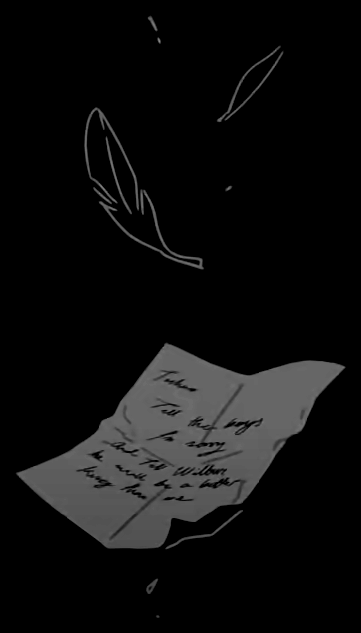 Techno
Tell the boys
I'm sorry
And Tell Wilbur
he be a better
king than me